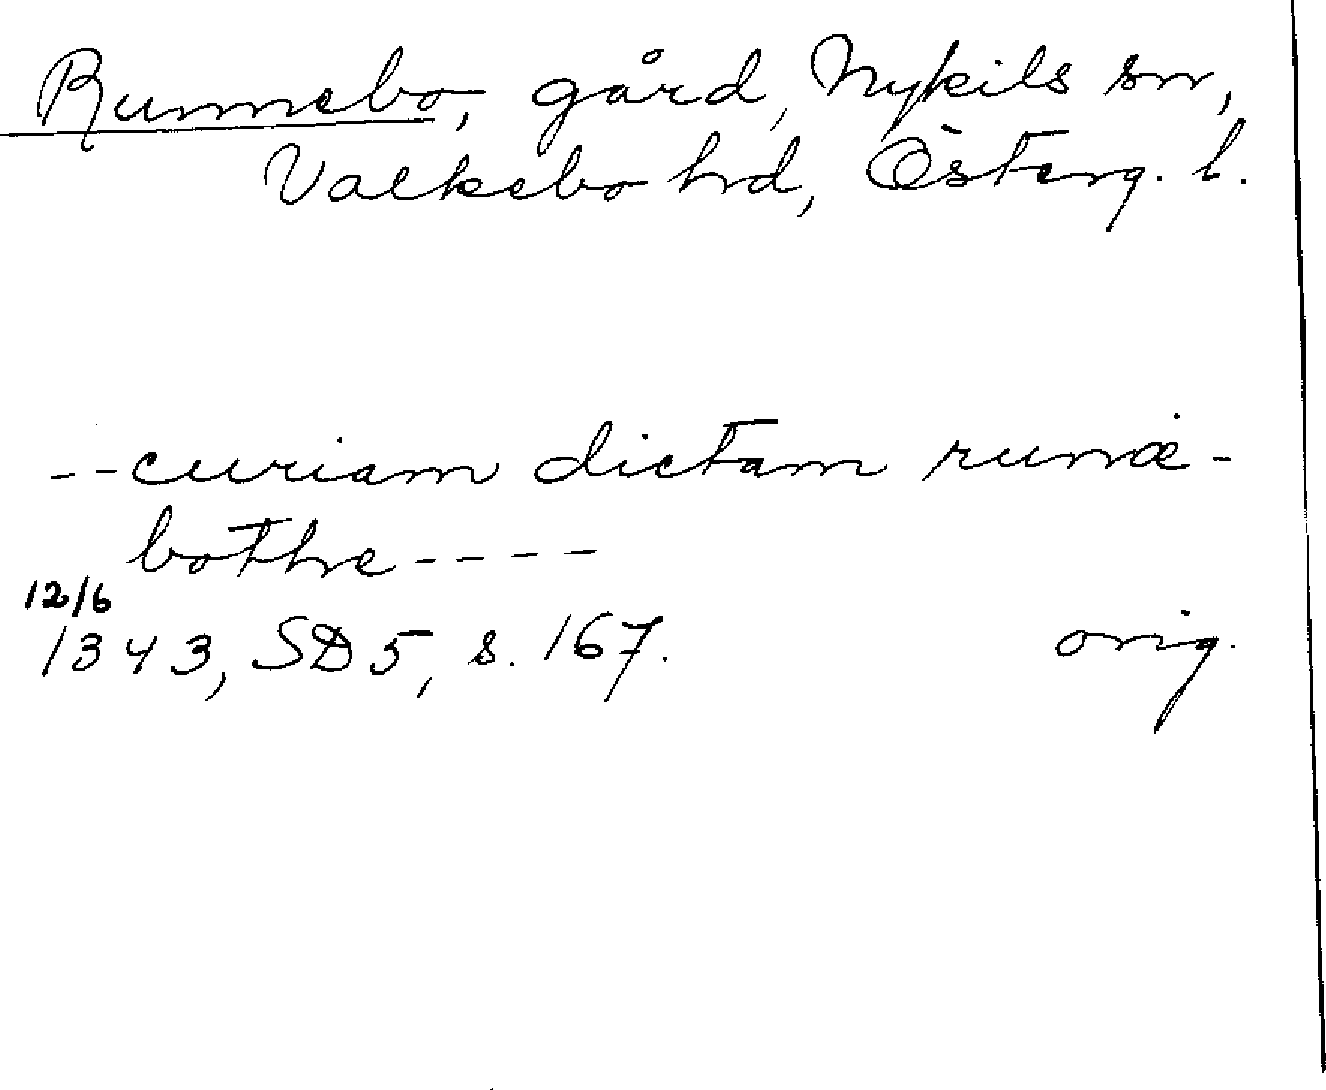 Runnebo, gård, Nykils sn,
Valkebo hd, Österg. l.
--curiam dictam runæ-
bothe----
12/6
1343, SD5, s. 167. orig.